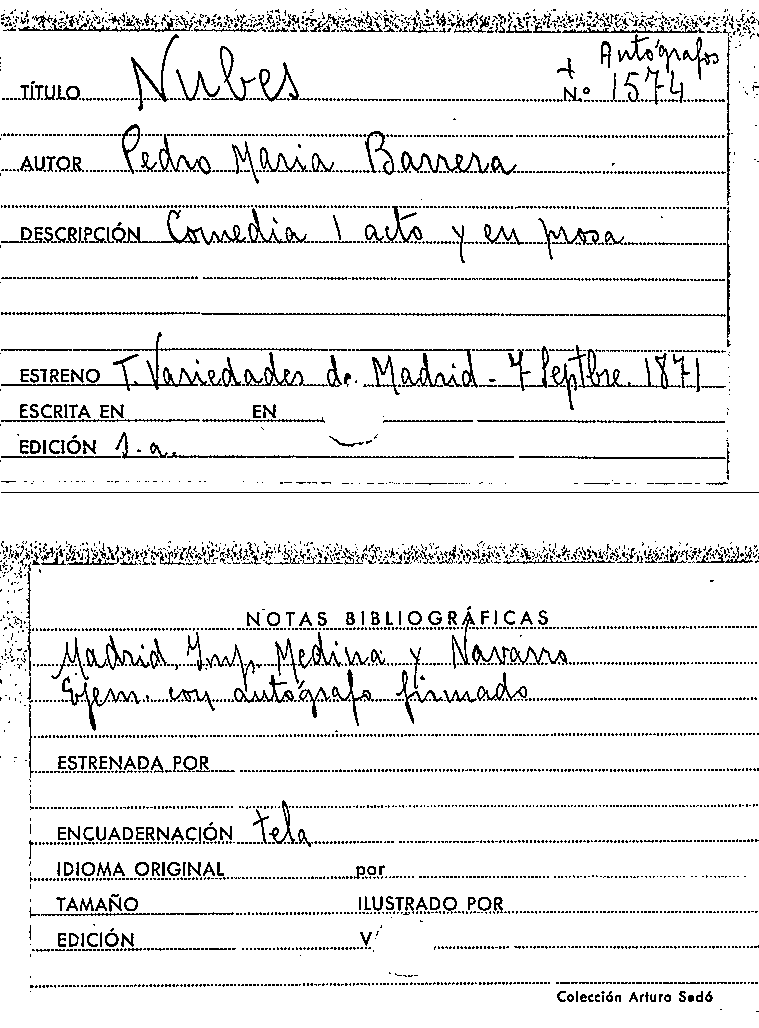 Autógrafos
TÍTULO Nubes + N.º 1574
AUTOR Pedro Maria Barrera
DESCRIPCIÓN Comedia 1 acto y en prosa
ESTRENO T. Variedades de Madrid - 7 Septbre. 1871
ESCRITA EN EN
EDICIÓN 1.a.
NOTAS BIBLIOGRÁFICAS
Madrid, Imp. Medina y Navarro
Ejem. con autógrafo firmado
ESTRENADA POR
ENCUADERNACIÓN tela
IDIOMA ORIGINAL por
TAMAÑO ILUSTRADO POR
EDICIÓN V
Colección Arturo Sedó